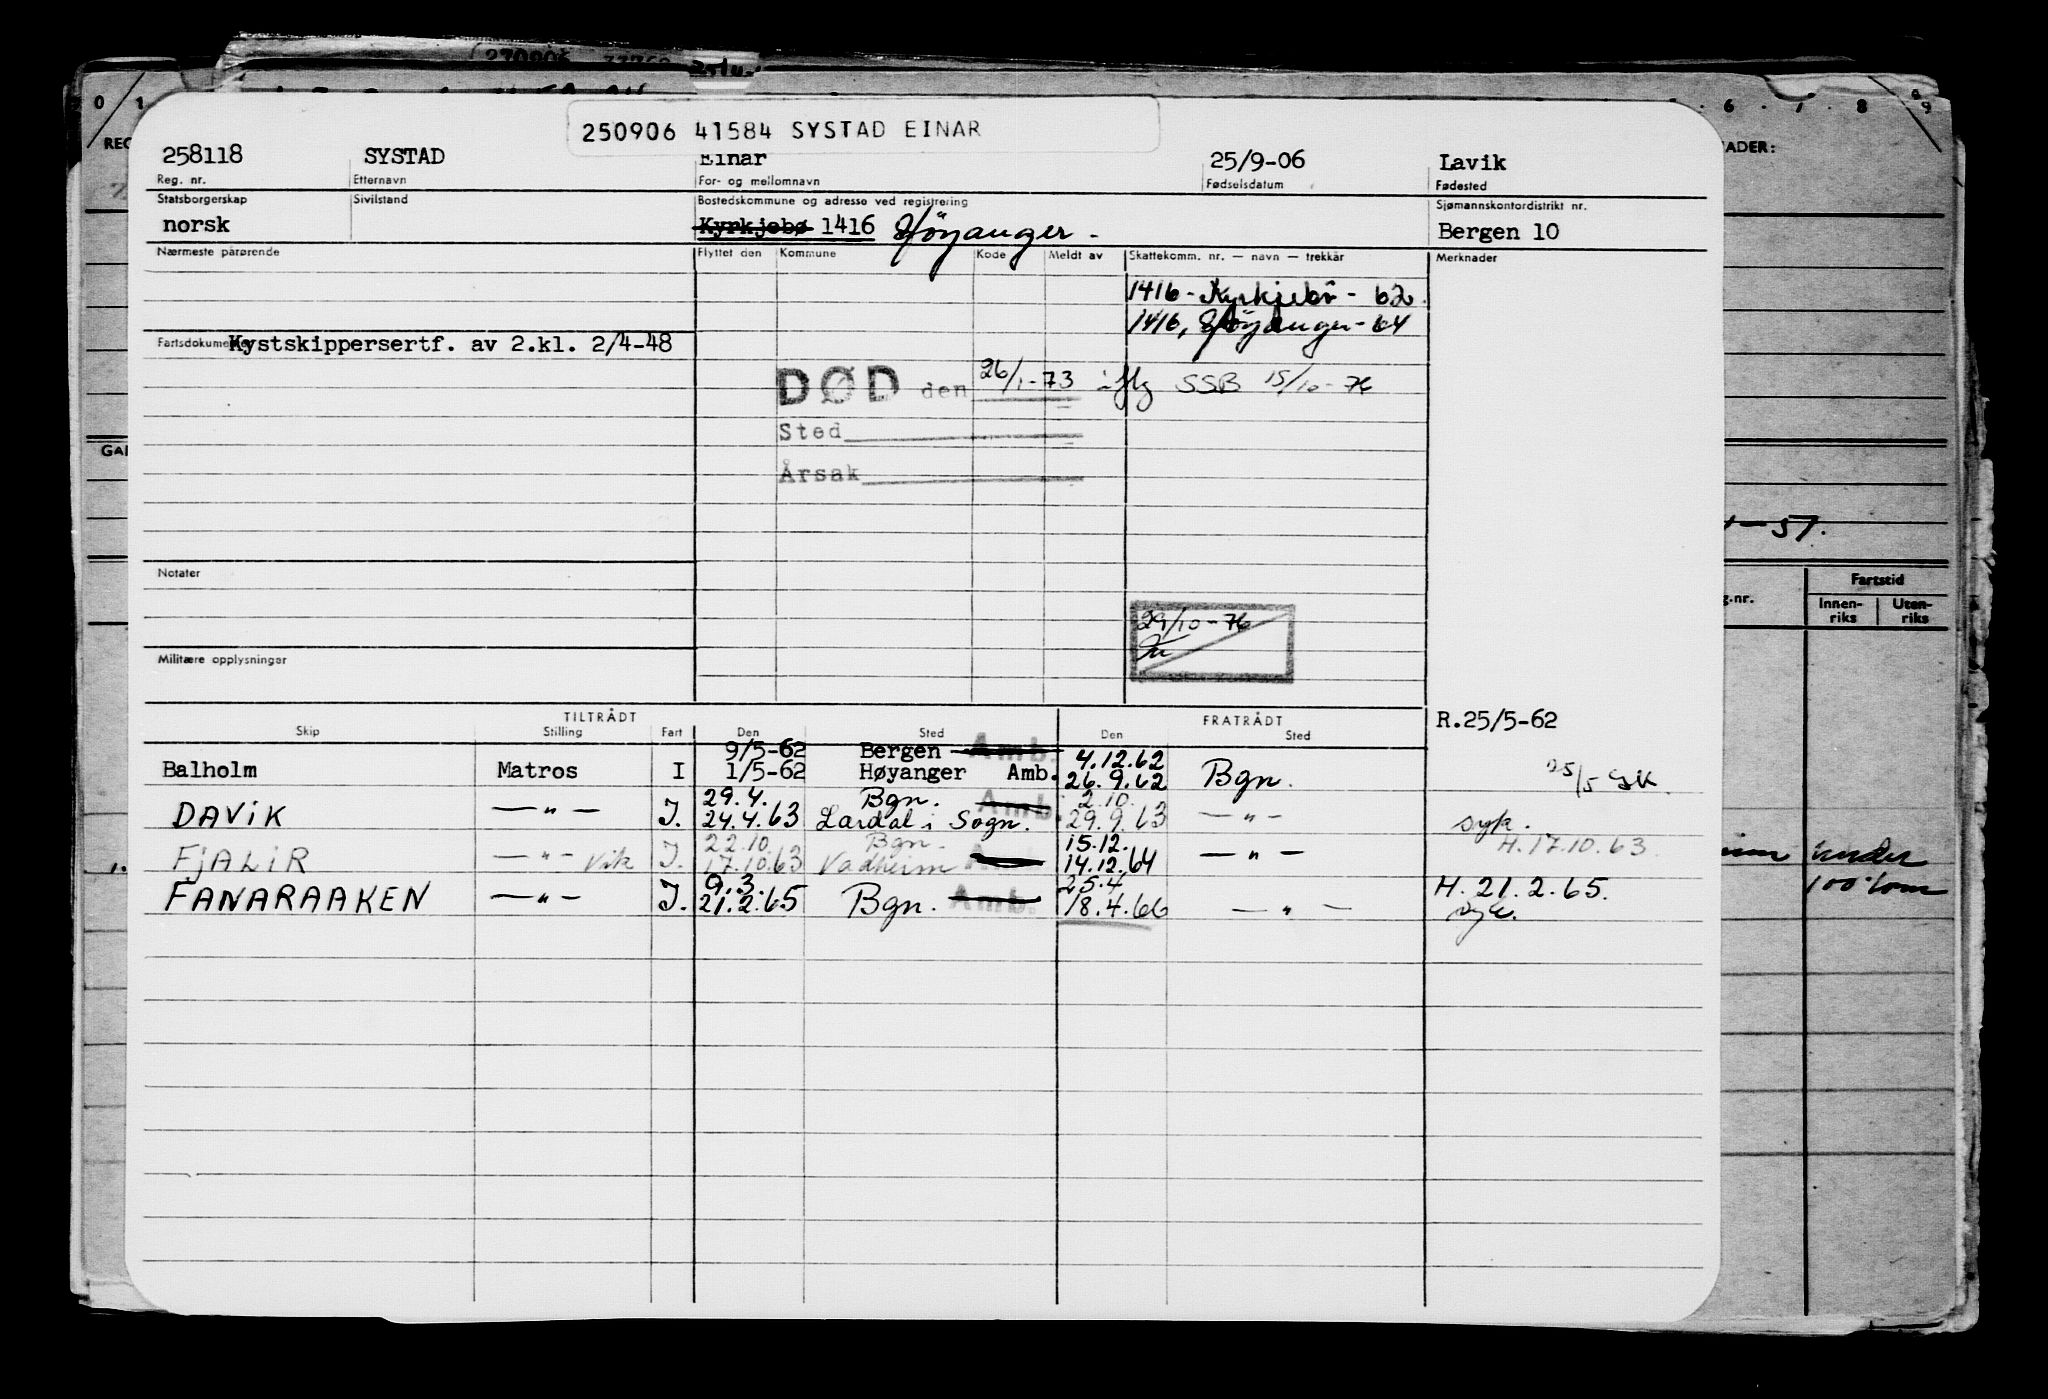 250906 41584 SYSTAD EINAR
258118 SYSTAD Einar 25/9-06 Lavik
Reg. nr. Etternavn For- og mellomnavn Fødselsdatum Fødested
Statsborgerskap Sivilstand Bostedskommune og adresse ved registrering Sjømannskontordistrikt nr.
norsk Kyrkjebø 1416 Höyanger - Bergen 10
Nærmeste pårørende Flyttet den Kommune Kode Meldt av Skattekomm. nr. — navn — trekkår Merknader
1416 - Kyrkjebö - 62.
1416, Höyanger - 64
Fartsdokumenter Kystskippersertf. av 2.kl. 2/4-48
DØD den 26/1-73 iflg SSB 15/10-76
Sted
Årsak
Notater
29/10-76
Militære opplysninger
TILTRÅDT FRATRÅDT R.25/5-62
Skip Stilling Fart Den Sted Den Sted
9/5-62 Bergen Amb. 4.12.62
Balholm Matros I 1/5-62 Høyanger Amb. 26.9.62 Bgn. 25/5 GK.
29.4. Bgn. Amb. 2.10.
DAViK — " — I. 24.4.63 Lærdal i Sogn. 29.9.63 — " — syk.
22.10. Bgn. 15.12. H.17.10.63.
FjALiR — " — Vik I. 17.10.63 Vadheim Amb. 14.12.64 — " —
9.3. 25.4.
FANARAAKEN — " — I. 21.2.65 Bgn. Amb. 18.4.66 — " — H. 21.2.65.
syk.
0 1 6 7 8 9
ADER:
-57.
g.nr. Fartstid
Innen-riks Uten-riks
under
100 tonn